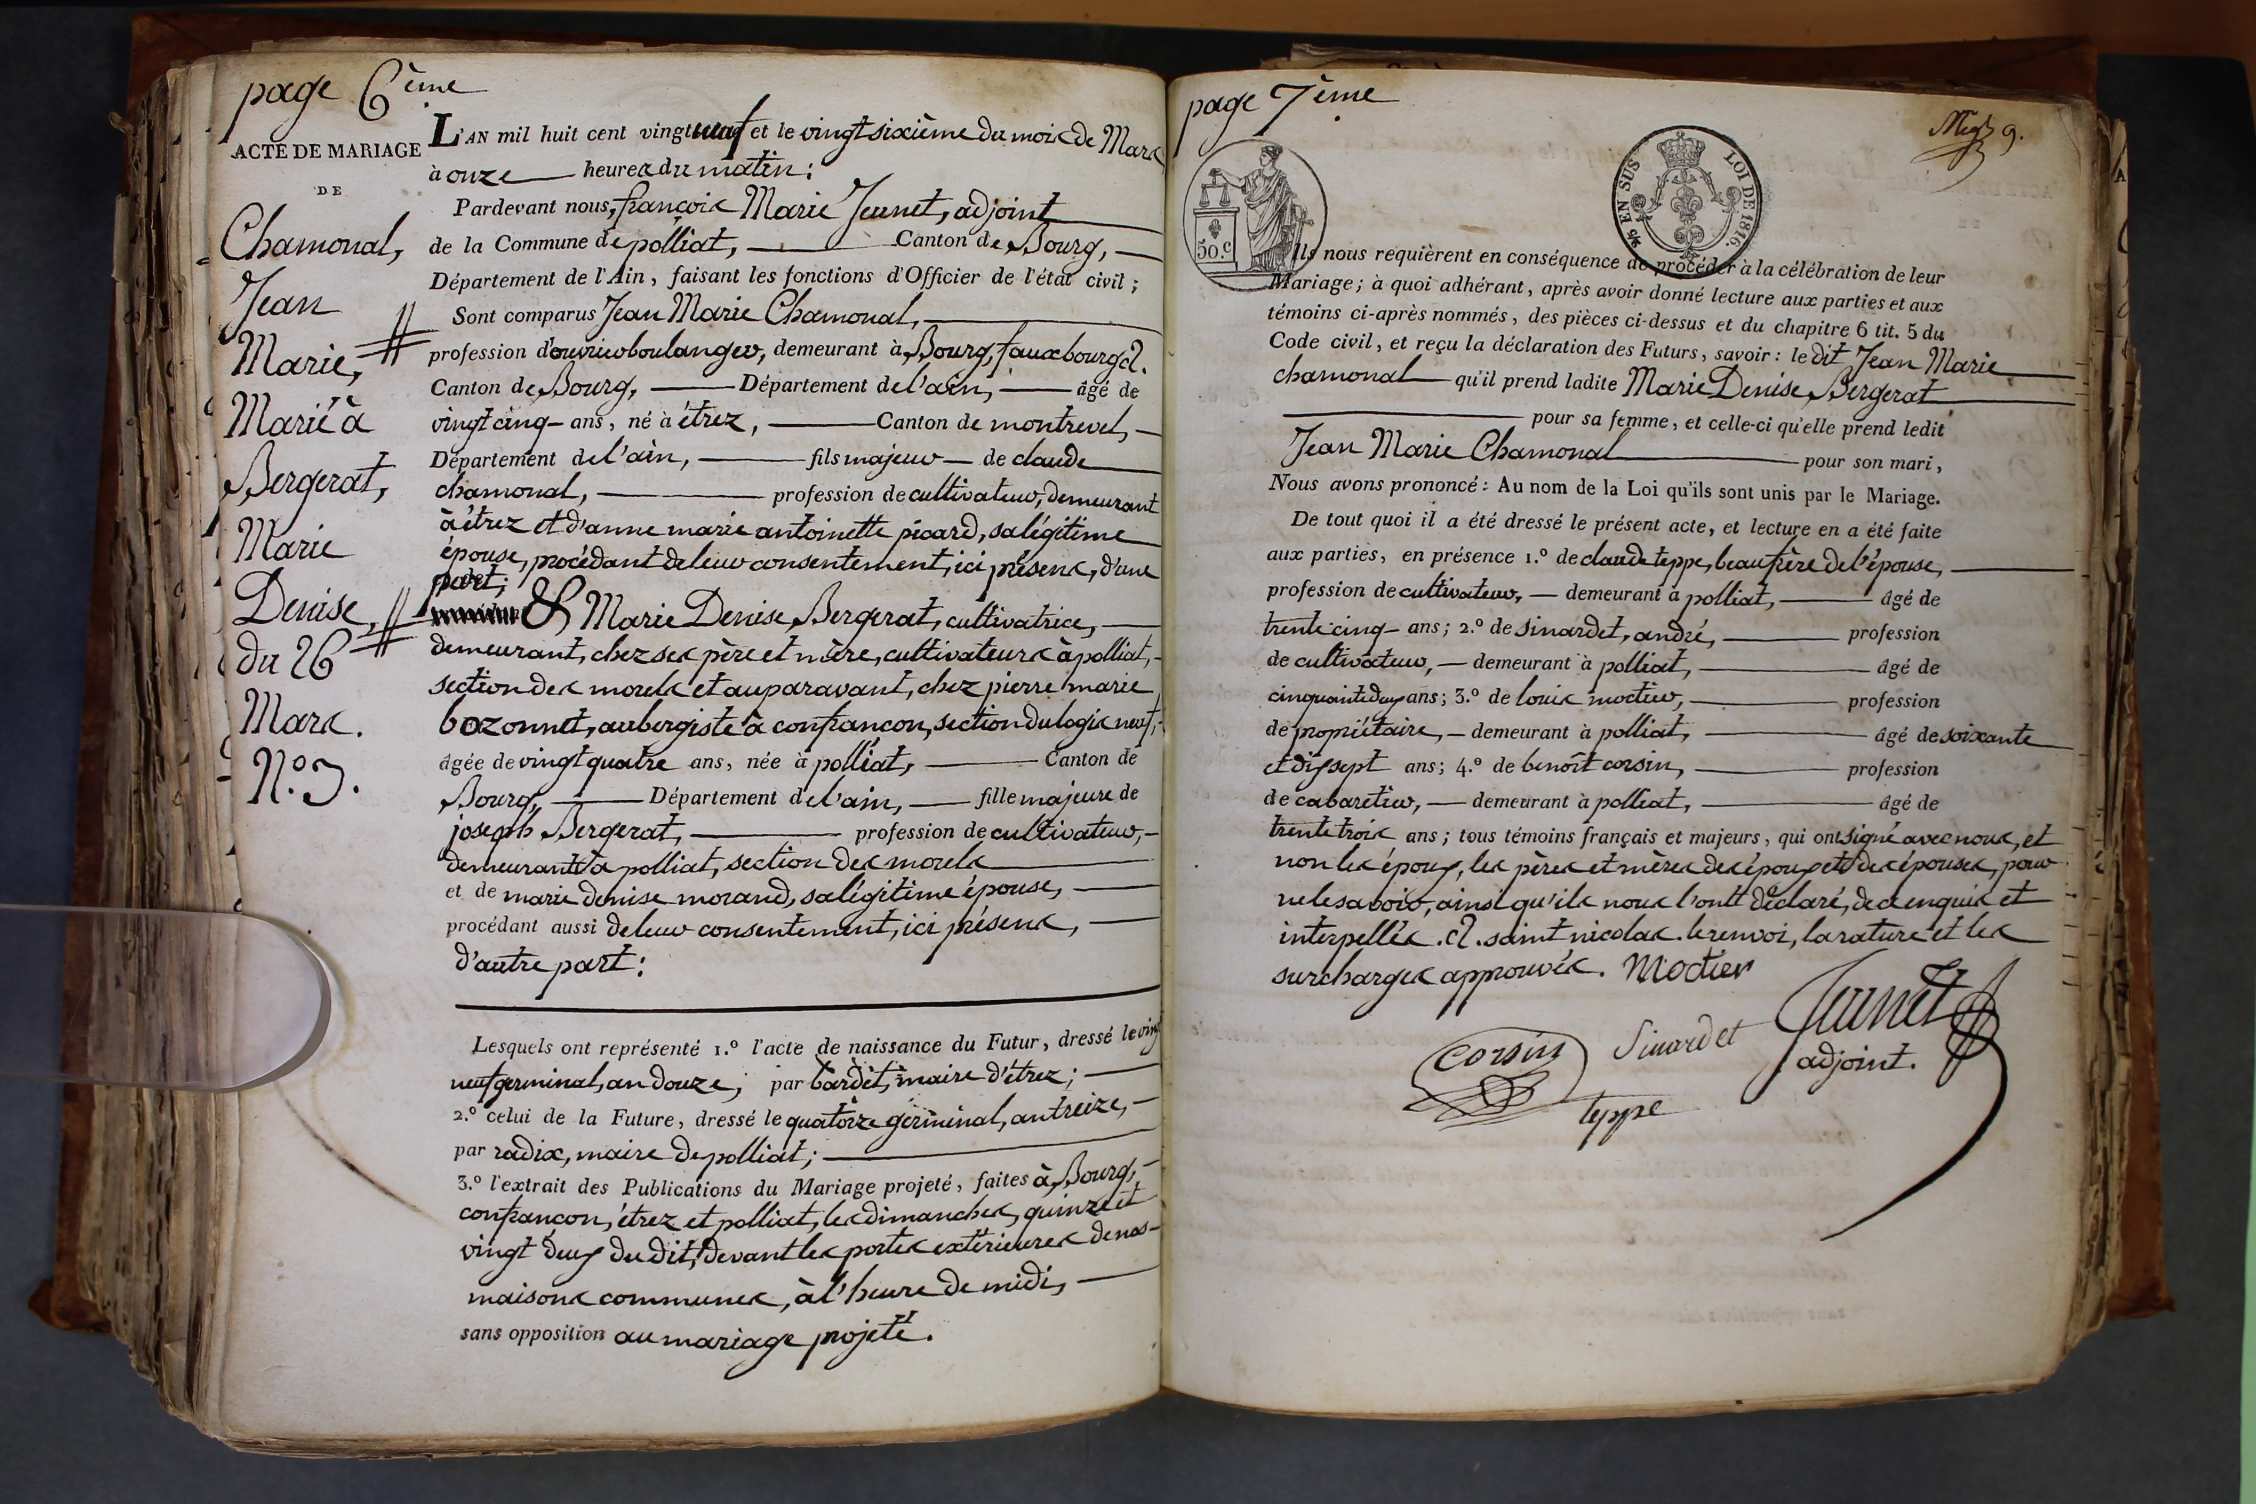 page 6ème
ACTE DE MARIAGE
DE
Chamonal,
Jean
Marie,
Marié à
Bergerat,
Marie
Denise,
du 26
Mars.
N.º 3.
L'AN mil huit cent vingt neuf et le vingt sixième du mois de Mars
à onze heures du matin;
Pardevant nous, françois Marie Jeunet, adjoint
de la Commune de polliat, Canton de Bourg,
Département de l'Ain, faisant les fonctions d'Officier de l'état civil;
Sont comparus Jean Marie Chamonal,
profession d'ouvrier boulanger, demeurant à Bourg, fauxbourg
Canton de Bourg, Département de l'ain, âgé de
vingt cinq ans, né à étrez, Canton de montrevel,
Département de l'ain, fils majeur de claude
chamonal, profession de cultivateur, demeurant
à étrez et d'anne marie antoinette picard, sa légitime
épouse, procédant de leur consentement, ici présens, d'une
part;
& Marie Denise Bergerat, cultivatrice,
demeurant, chez ses père et mère, cultivateurs à polliat,
section des morels et auparavant, chez pierre marie
bozonnet, aubergiste à confrançon, section du logis neuf,
âgée de vingt quatre ans, née à polliat, Canton de
Bourg, Département de l'ain, fille majeure de
joseph Bergerat, profession de cultivateur,
demeurants à polliat, section des morels
et de marie denise morand, sa légitime épouse,
procédant aussi de leur consentement, ici présens,
d'autre part:
Lesquels ont représenté 1.º l'acte de naissance du Futur, dressé le vingt
neuf germinal, an douze, par bardet, maire d'étrez;
2.º celui de la Future, dressé le quatorze germinal, an treize,
par radix, maire de polliat;
3.º l'extrait des Publications du Mariage projeté, faites à Bourg,
confrançon, étrez et polliat, les dimanches, quinze et
vingt deux du dit, devant les portes extérieures de nos
maisons communes, à l'heure de midi,
sans opposition au mariage projeté.
page 7ème
9.
EN SUS
LOI DE 1816.
50.c
Ils nous requièrent en conséquence de procéder à la célébration de leur
Mariage; à quoi adhérant, après avoir donné lecture aux parties et aux
témoins ci-après nommés, des pièces ci-dessus et du chapitre 6 tit. 5 du
Code civil, et reçu la déclaration des Futurs, savoir: le dit Jean Marie
chamonal qu'il prend ladite Marie Denise Bergerat
pour sa femme, et celle-ci qu'elle prend ledit
Jean Marie Chamonal pour son mari,
Nous avons prononcé: Au nom de la Loi qu'ils sont unis par le Mariage.
De tout quoi il a été dressé le présent acte, et lecture en a été faite
aux parties, en présence 1.º de claude teppe, beaufrère de l'épouse,
profession de cultivateur, demeurant à polliat, âgé de
trente cinq ans; 2.º de sinardet, andré, profession
de cultivateur, demeurant à polliat, âgé de
cinquante deux ans; 3.º de louis moctier, profession
de propriétaire, demeurant à polliat, âgé de soixante
et dix sept ans; 4.º de benoît corsin, profession
de cabaretier, demeurant à polliat, âgé de
trente trois ans; tous témoins français et majeurs, qui ont signé avec nous, et
non les époux, les pères et mères des époux et des épouses, pour
ne le savoir, ainsi qu'ils nous l'ont déclaré, de ce enquis et
interpellés. saint nicolas. le renvoi, la rature et les
surcharges approuvés. Moctier
Jeunet
Corsin Sinardet
adjoint.
teppe